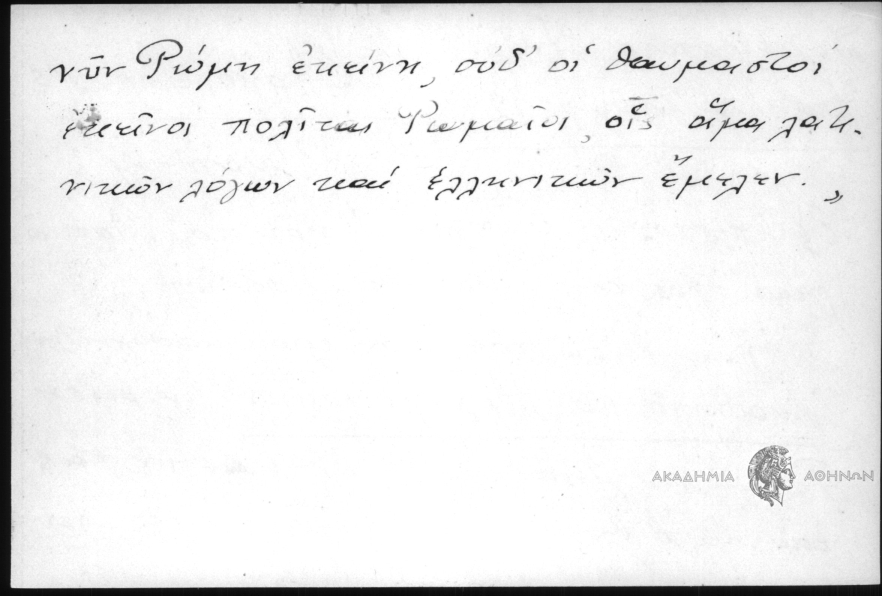 νῦν Ῥώμη ἐκείνη, οὐδ' οἱ θαυμαστοί
ἐκεῖνοι πολῖται Ῥωμαῖοι, οἷς ἅμα λατι-
νικῶν λόγων καί ἑλληνικῶν ἔμελεν. »
ΑΚΑΔΗΜΙΑ ΑΘΗΝΩΝ